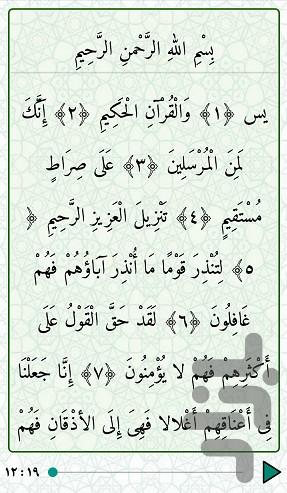 بِسْمِ اللهِ الرَّحْمنِ الرَّحِيمِ
يس ﴿١﴾ وَالْقُرْآنِ الْحَكِيمِ ﴿٢﴾ إِنَّكَ
لَمِنَ الْمُرْسَلِينَ ﴿٣﴾ عَلَى صِرَاطٍ
مُسْتَقِيمٍ ﴿٤﴾ تَنْزِيلَ الْعَزِيزِ الرَّحِيمِ ﴿
٥﴾ لِتُنْذِرَ قَوْمًا مَا أُنْذِرَ آبَاؤُهُمْ فَهُمْ
غَافِلُونَ ﴿٦﴾ لَقَدْ حَقَّ الْقَوْلُ عَلَى
أَكْثَرِهِمْ فَهُمْ لا يُؤْمِنُونَ ﴿٧﴾ إِنَّا جَعَلْنَا
فِي أَعْنَاقِهِمْ أَغْلالا فَهِيَ إِلَى الأذْقَانِ فَهُمْ
١٢:١٩